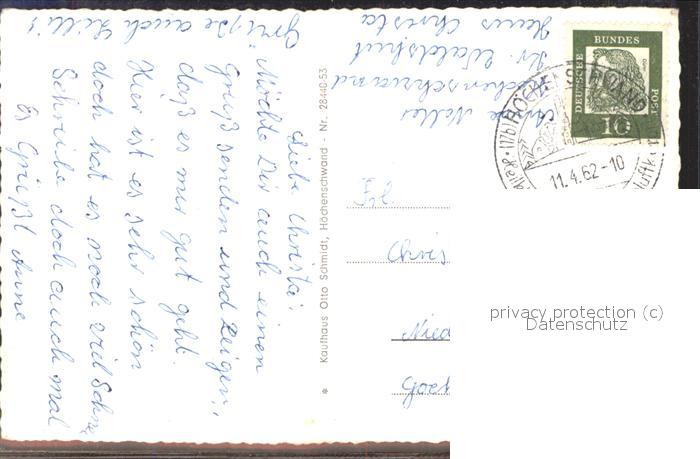 Liebe Christa,
Möchte Dir auch einen
Gruß senden und Zeigen,
daß es mir gut geht.
Hier ist es sehr schön
doch hat es noch viel Schnee
Schreibe doch auch mal
Es Grüßt Anne
Grüße auch
Höchenschwand
Kr. Waldshut
Haus Christa
* Kaufhaus Otto Schmidt, Höchenschwand - Nr. 28440-53
DEUTSCHE BUNDES POST
10
11.4.62-10
Frl.
Chris
Nied
privacy protection (c)
Datenschutz